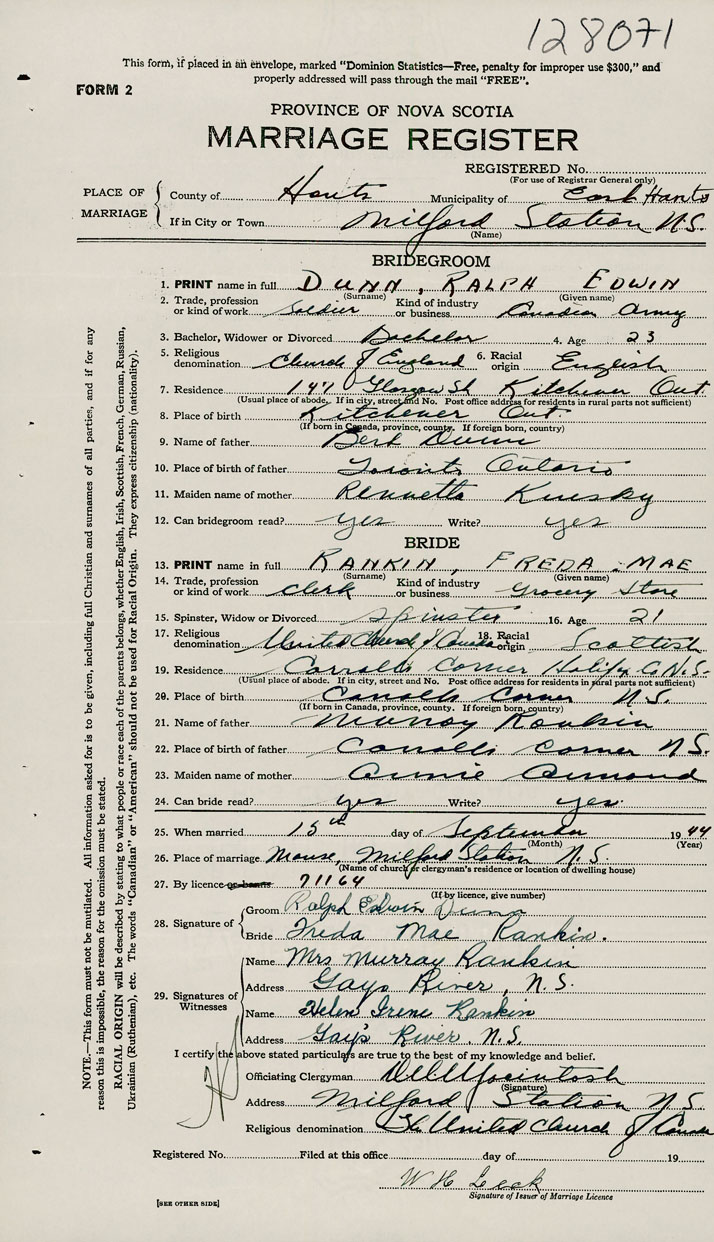 128071
This form, if placed in an envelope, marked "Dominion Statistics—Free, penalty for improper use $300," and
properly addressed will pass through the mail "FREE".
FORM 2
PROVINCE OF NOVA SCOTIA
MARRIAGE REGISTER
REGISTERED No.
(For use of Registrar General only)
PLACE OF MARRIAGE
County of Hants Municipality of East Hants
If in City or Town Milford Station N.S.
(Name)
BRIDEGROOM
1. PRINT name in full DUNN, RALPH EDWIN
(Surname) (Given name)
2. Trade, profession or kind of work Soldier Kind of industry or business Canadian Army
3. Bachelor, Widower or Divorced Bachelor 4. Age 23
5. Religious denomination Church of England 6. Racial origin English
7. Residence 141 Glasgow St Kitchener Ont.
(Usual place of abode. If in city, street and No. Post office address for residents in rural parts not sufficient)
8. Place of birth Kitchener Ont.
(If born in Canada, province, county. If foreign born, country)
9. Name of father Bert Dunn
10. Place of birth of father Toronto Ontario
11. Maiden name of mother Rennetta
12. Can bridegroom read? yes Write? yes
BRIDE
13. PRINT name in full RANKIN, FREDA MAE
(Surname) (Given name)
14. Trade, profession or kind of work Clerk Kind of industry or business Grocery Store
15. Spinster, Widow or Divorced Spinster 16. Age 21
17. Religious denomination United Church of Canada 18. Racial origin Scottish
19. Residence Carrolls Corner Halifax Co. N.S.
(Usual place of abode. If in city, street and No. Post office address for residents in rural parts not sufficient)
20. Place of birth Carrolls Corner N.S.
(If born in Canada, province, county. If foreign born, country)
21. Name of father Murray Rankin
22. Place of birth of father Carrolls Corner N.S.
23. Maiden name of mother Annie
24. Can bride read? yes Write? yes.
25. When married 15th day of September 1944
(Month) (Year)
26. Place of marriage Manse, Milford Station N.S.
(Name of church or clergyman's residence or location of dwelling house)
27. By licence or banns 71164
(If by licence, give number)
28. Signature of
Groom Ralph Edwin Dunn
Bride Freda Mae Rankin.
29. Signatures of Witnesses
Name Mrs Murray Rankin
Address Gays River, N.S.
Name Helen Irene Rankin
Address Gay's River. N.S.
I certify the above stated particulars are true to the best of my knowledge and belief.
Officiating Clergyman
(Signature)
Address Milford Station N.S.
Religious denomination The United Church of
Registered No. Filed at this office day of 19
W H Leck
Signature of Issuer of Marriage Licence
[SEE OTHER SIDE]
NOTE.—This form must not be mutilated. All information asked for is to be given, including full Christian and surnames of all parties, and if for any
reason this is impossible, the reason for the omission must be stated.
RACIAL ORIGIN will be described by stating to what people or race each of the parents belongs, whether English, Irish, Scottish, French, German, Russian,
Ukrainian (Ruthenian), etc. The words "Canadian" or "American" should not be used for Racial Origin. They express citizenship (nationality).